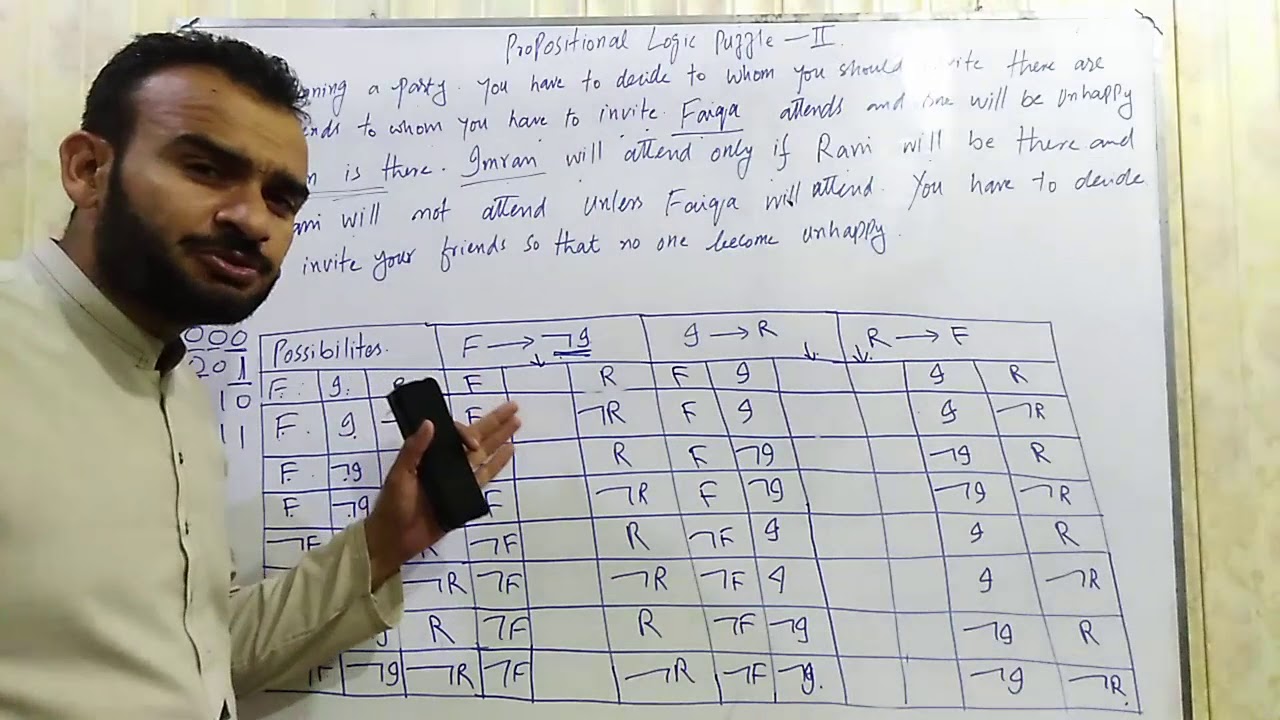 Propositional Logic Puzzle - II.
a party. You have to decide to whom you should there are
to whom you have to invite. Faiqa attends and one will be unhappy
is there. Imran will attend only if Rani will be there and
will not attend unless Faiqa will attend. You have to decide
invite your friends so that no one become unhappy.
000
Possibilites. F → ¬I I → R R → F
01
F. I. F R F I I R
10
F. I F ¬R F I I ¬R
11
F. ¬I R F ¬I ¬I R
F. ¬I F ¬R F ¬I ¬I ¬R
¬F R ¬F R ¬F I I R
¬R ¬F ¬R ¬F I I ¬R
R ¬F R ¬F ¬I ¬I R
¬I ¬R ¬F ¬R ¬F ¬I. ¬I ¬R